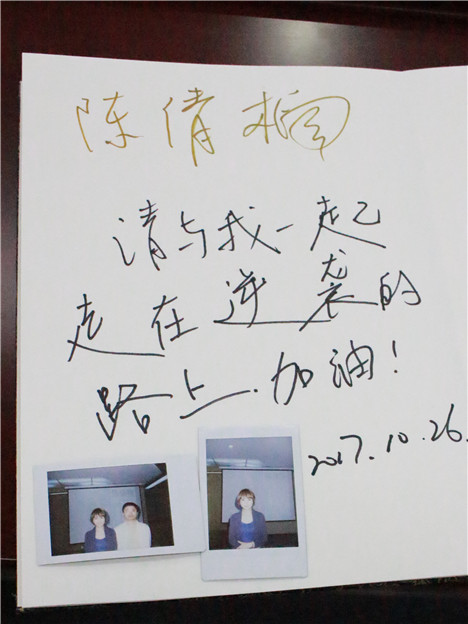 陈倩
请与我一起
走在逆袭的
路上.加油!
2017.10.26.